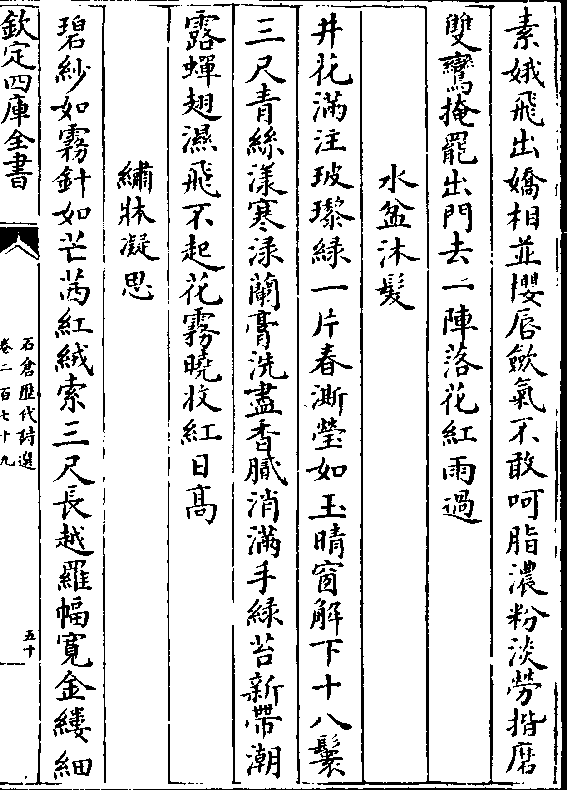 素娥飛出嬌相並櫻唇斂氣不敢呵脂濃粉淡勞揩磨
雙鸞掩罷出門去一陣落花紅雨過
水盆沐髮
井花滿注玻瓈緑一片春澌瑩如玉晴窗解下十八鬟
三尺青絲漾寒渌蘭膏洗盡香膩消滿手緑苔新帶潮
露蟬翅濕飛不起花霧曉妝紅日髙
繡牀凝思
碧紗如霧針如芒茜紅絨索三尺長越羅幅寛金縷細
欽定四庫全書
石倉歴代詩選
卷二百七十九
五十